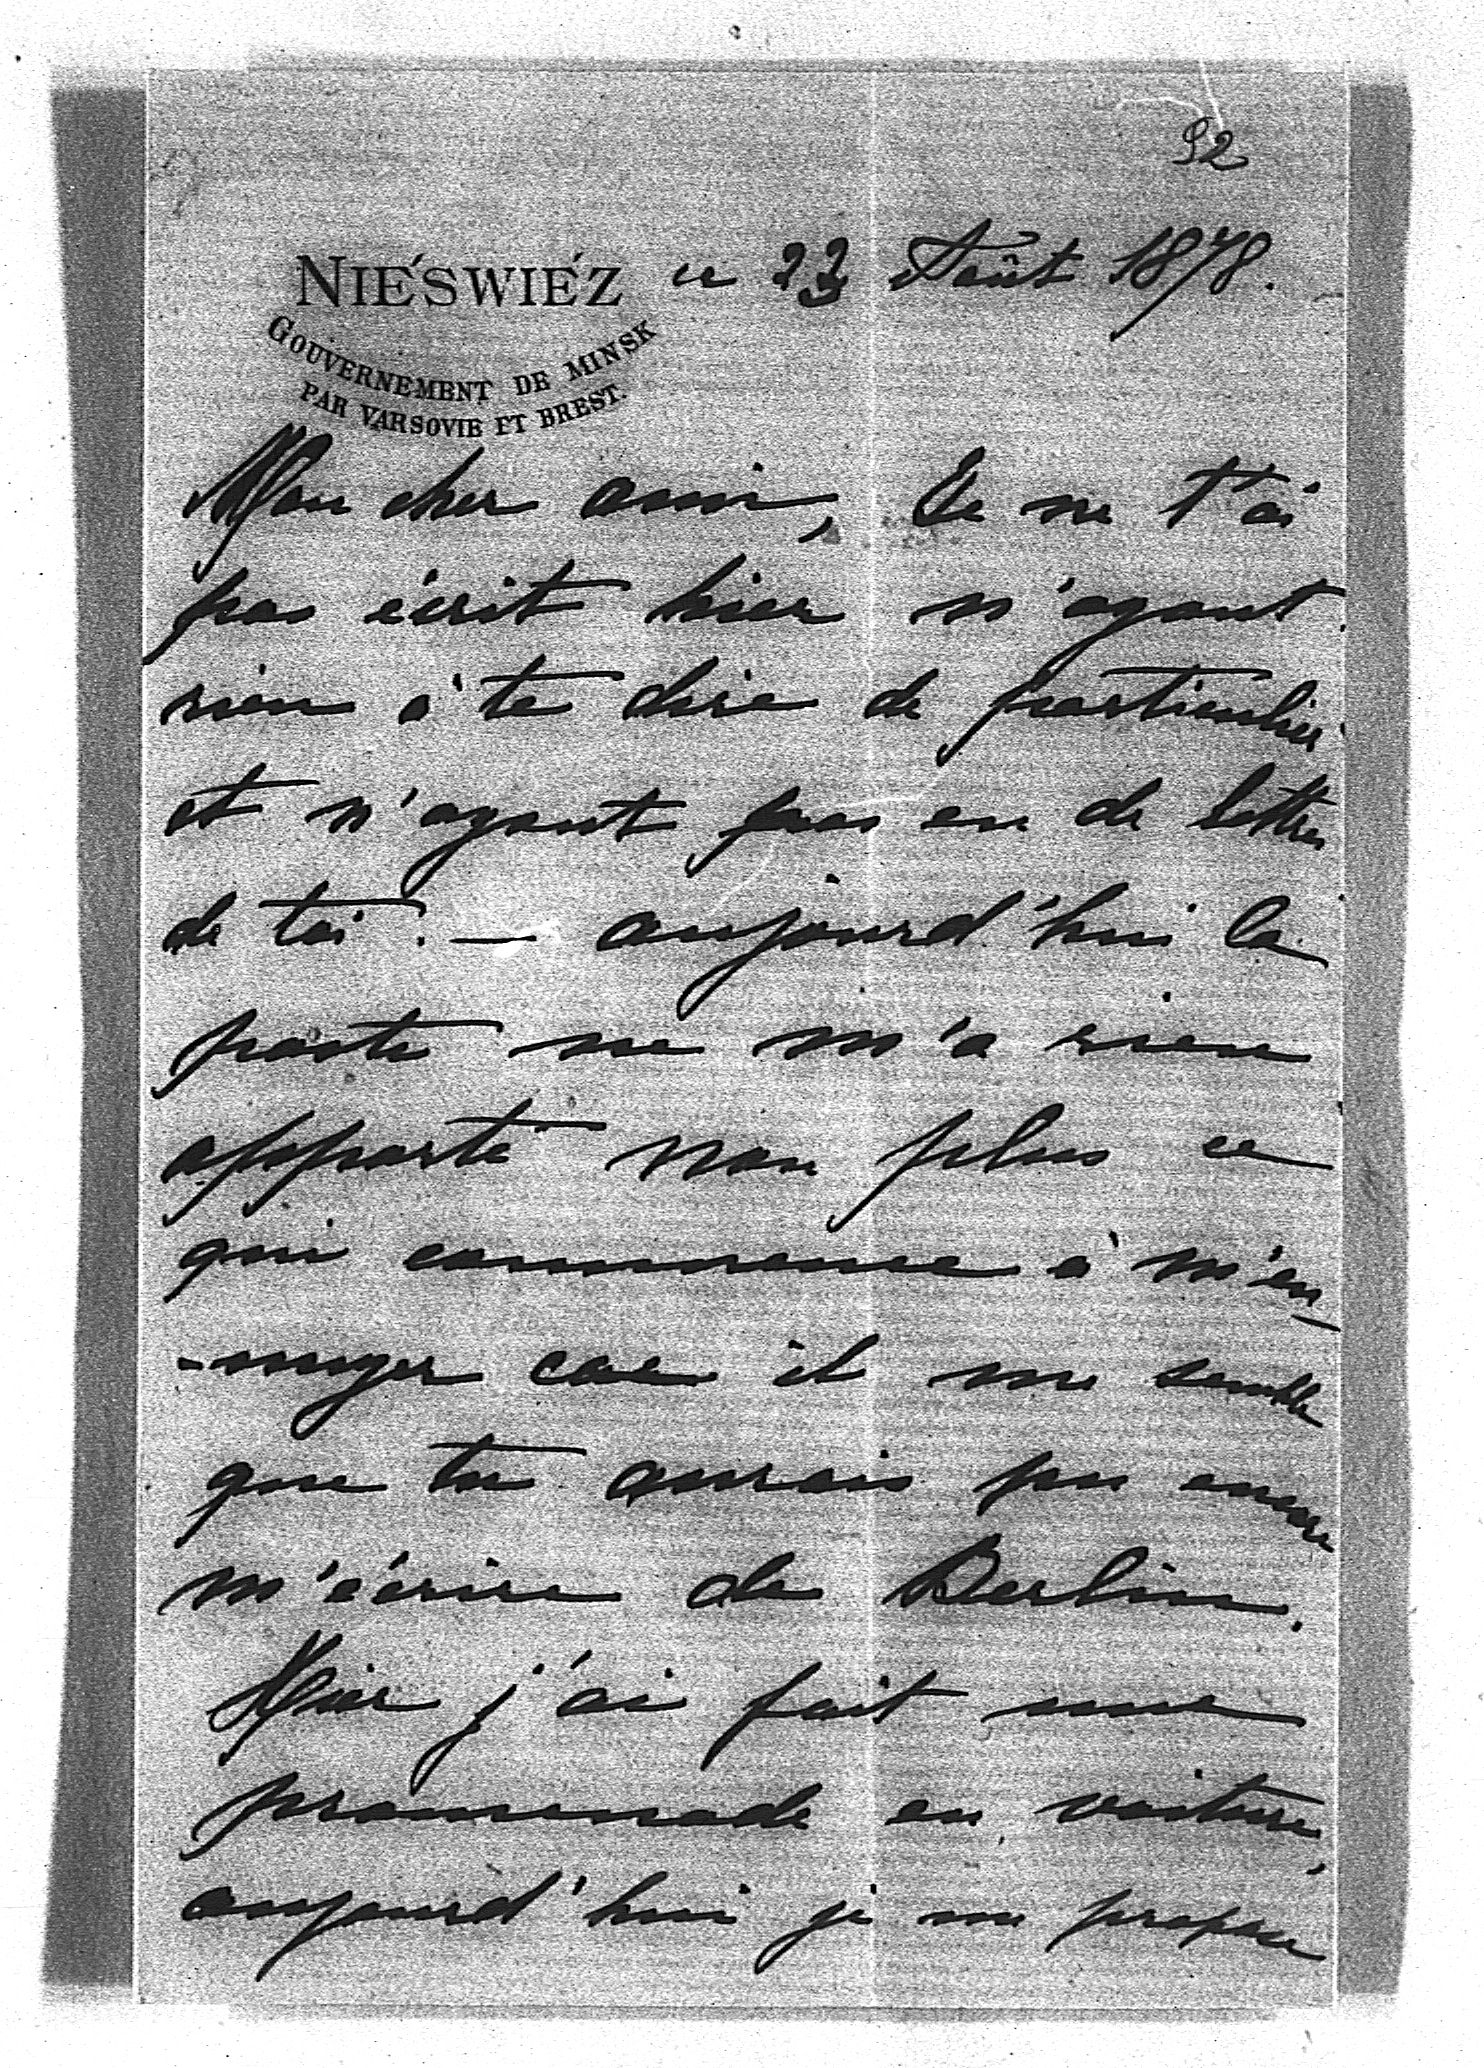 92
NIEŚWIEŹ ce 23 Août 1878.
GOUVERNEMENT DE MINSK
PAR VARSOVIE ET BREST.
Mon cher ami, Je ne t'ai
pas écrit hier n'ayant
rien à te dire de particulier
et n'ayant pas eu de lettre
de toi. — aujourd'hui la
poste ne m'a rien
apporté non plus ce
qui commence à m'en-
-nuyer car il me semble
que tu aurais pu encore
m'écrire de Berlin.
Hier j'ai fait une
promenade en voiture,
aujourd'hui je me propose